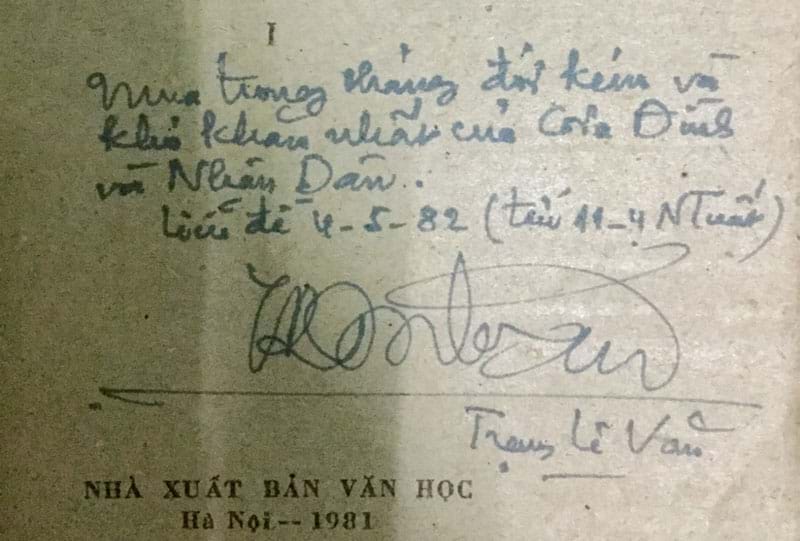 I
Mua trong tháng đói kém và
khó khăn nhất của Gia Đình
và Nhân Dân.
Liễu đề 4-5-82 (tức 11-4 N Tuất)
Lê Văn
NHÀ XUẤT BẢN VĂN HỌC
Hà Nội -- 1981